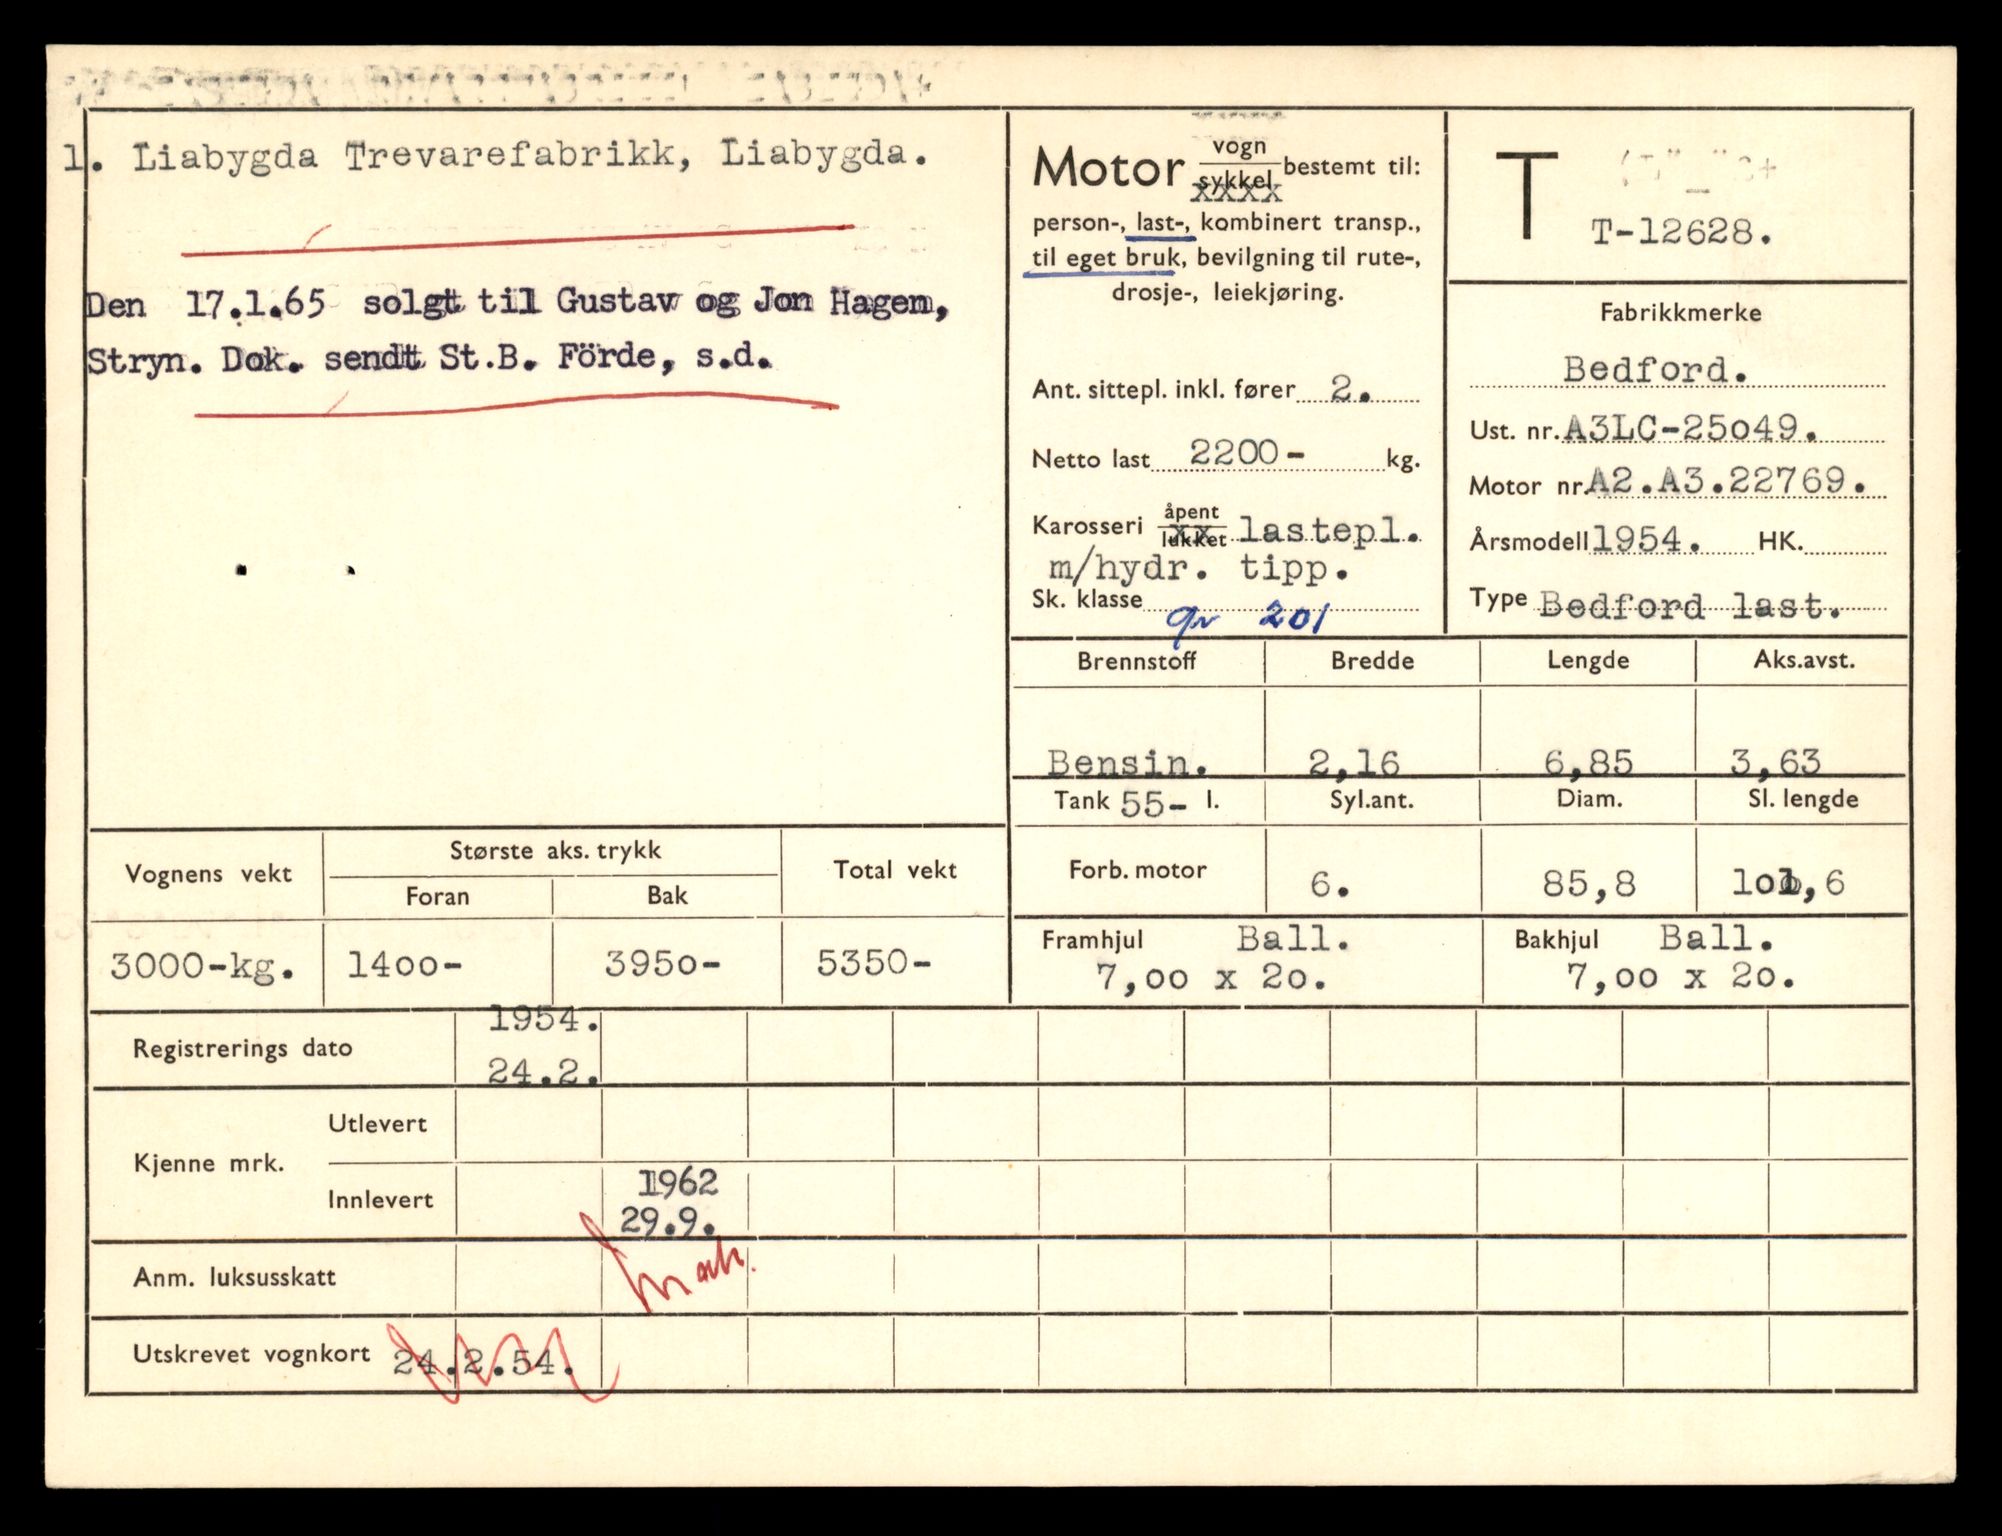 1. Liabygda Trevarefabrikk, Liabygda.
Den 17.1.65 solgt til Gustav og Jon Hagen,
Stryn. Dok. sendt St.B. Förde, s.d.
Motor vogn sykkel bestemt til:
xxxx
person-, last-, kombinert transp.,
til eget bruk, bevilgning til rute-,
drosje-, leiekjøring.
Ant. sittepl. inkl. fører 2.
Netto last 2200- kg.
Karosseri åpent lukket xx lastepl.
m/hydr. tipp.
Sk. klasse gr 201
T
T-12628.
Fabrikkmerke
Bedford.
Ust. nr. A3LC-25o49.
Motor nr. A2.A3.22769.
Årsmodell 1954. HK.
Type Bedford last.
Brennstoff Bredde Lengde Aks.avst.
Bensin. 2,16 6,85 3,63
Tank 55- l. Syl.ant. Diam. Sl. lengde
Forb. motor 6. 85,8 1o1,6
Framhjul Ball. Bakhjul Ball.
7,oo x 2o. 7,oo x 2o.
Vognens vekt Største aks. trykk Total vekt
Foran Bak
3000-kg. 14oo- 395o- 5350-
Registrerings dato 1954.
24.2.
Kjenne mrk. Utlevert
Innlevert 1962
29.9.
Anm. luksusskatt
Utskrevet vognkort 24.2.54.